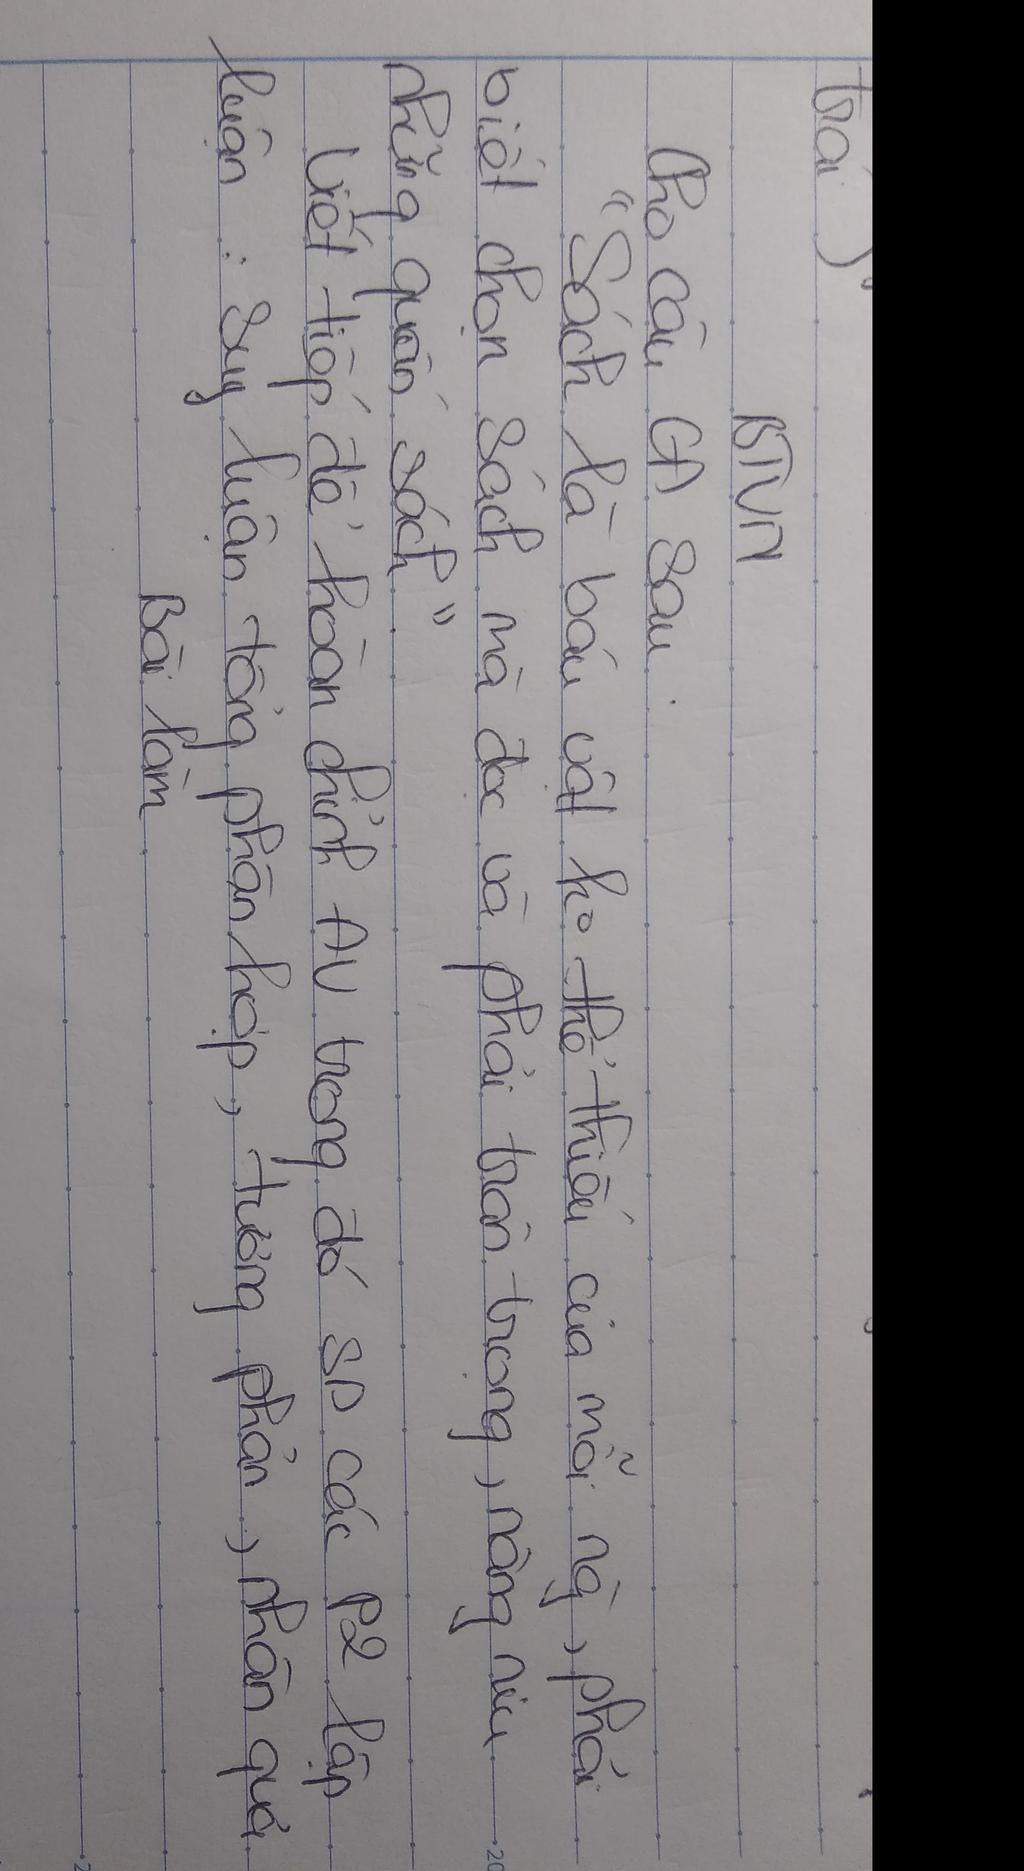 trái
BTVN
Cho câu CĐ sau:
"Sách là báu vật ko thể thiếu của mỗi ng, phải
biết chọn sách mà đọc và phải trân trọng, nâng niu
những quấn sách"
Viết tiếp để hoàn chỉnh ĐV trong đó SD các P2 lập
luận: suy luận tổng phân hợp, tương phản, nhân quả
Bài làm